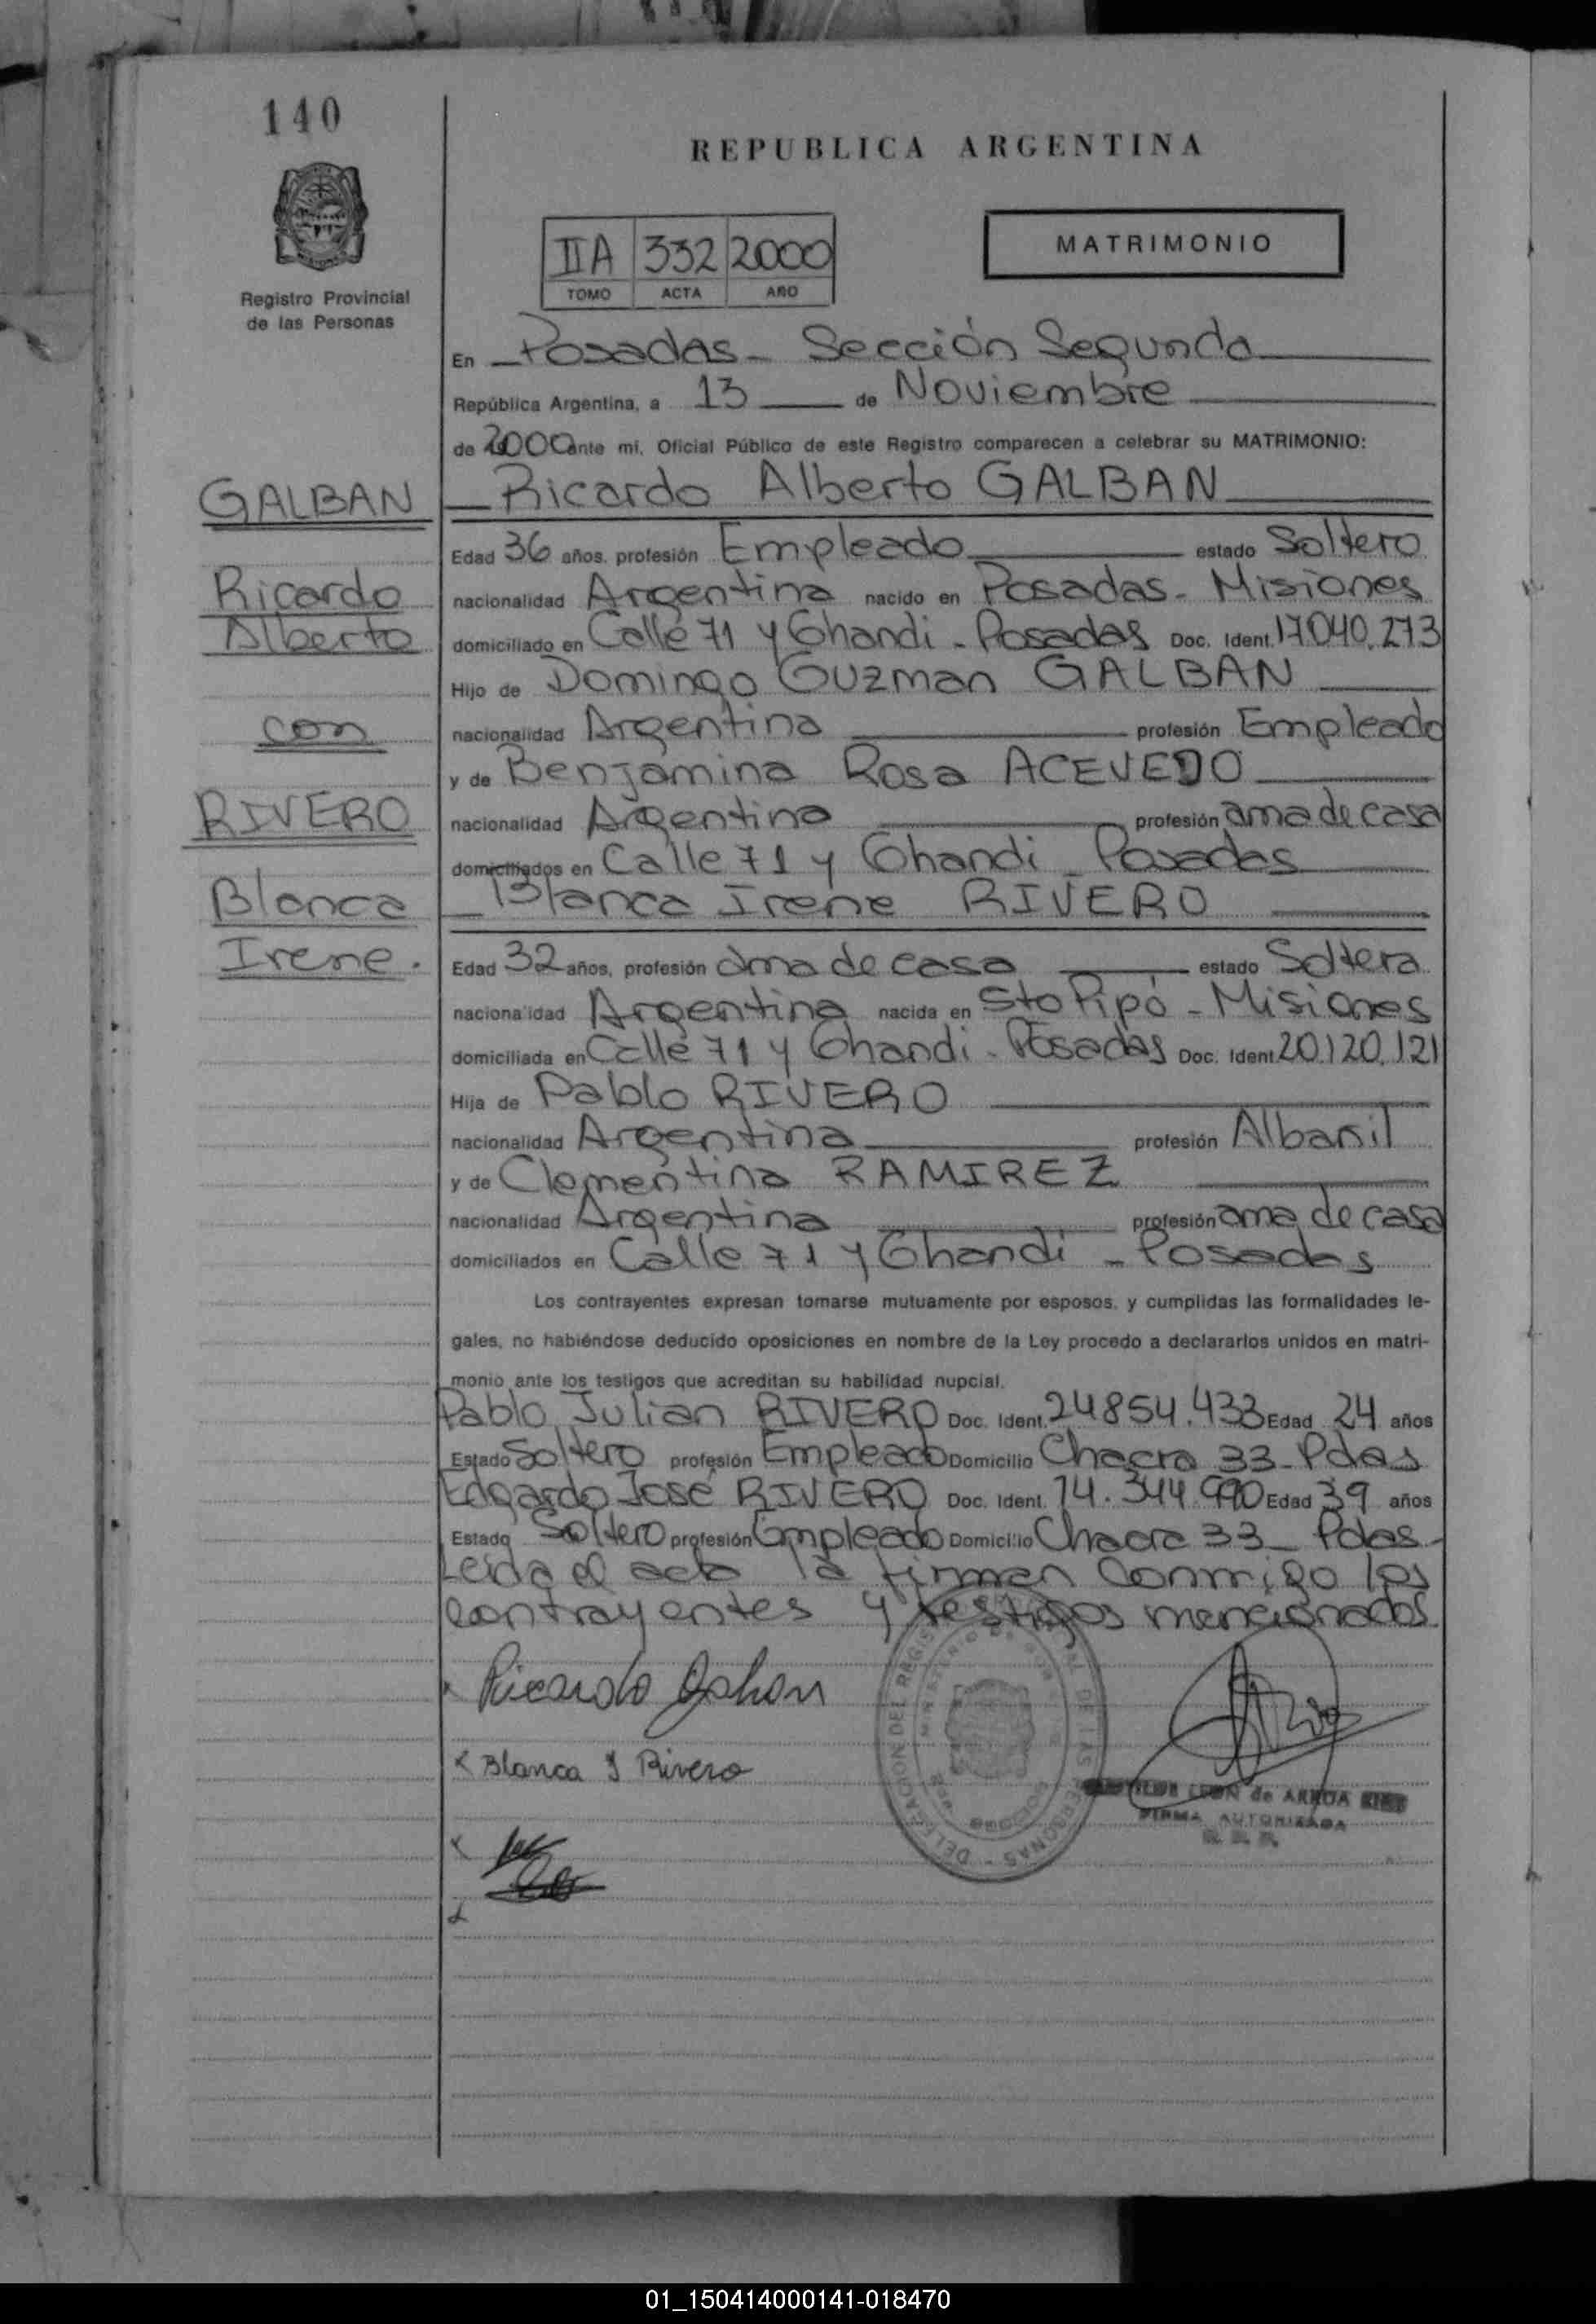 140
REPUBLICA ARGENTINA
Registro Provincial
de las Personas
IIA 332 2000
TOMO ACTA AÑO
MATRIMONIO
En Posadas - Sección Segunda
República Argentina, a 13 de Noviembre
de 2000 ante mi, Oficial Público de este Registro comparecen a celebrar su MATRIMONIO:
GALBAN
Ricardo
Alberto
con
RIVERO
Blanca
Irene.
Ricardo Alberto GALBAN
Edad 36 años, profesión Empleado estado Soltero
nacionalidad Argentina nacido en Posadas - Misiones
domiciliado en Calle 71 y Ghandi - Posadas Doc. Ident. 17.040.273
Hijo de Domingo Guzman GALBAN
nacionalidad Argentina profesión Empleado
y de Benjamina Rosa ACEVEDO
nacionalidad Argentina profesión ama de casa
domiciliados en Calle 71 y Ghandi - Posadas
Blanca Irene RIVERO
Edad 32 años, profesión ama de casa estado Soltera
nacionalidad Argentina nacida en Sto Pipó - Misiones
domiciliada en Calle 71 y Ghandi - Posadas Doc. Ident. 20.120.121
Hija de Pablo RIVERO
nacionalidad Argentina profesión Albañil
y de Clementina RAMIREZ
nacionalidad Argentina profesión ama de casa
domiciliados en Calle 71 y Ghandi - Posadas
Los contrayentes expresan tomarse mutuamente por esposos, y cumplidas las formalidades le-
gales, no habiéndose deducido oposiciones en nombre de la Ley procedo a declararlos unidos en matri-
monio ante los testigos que acreditan su habilidad nupcial.
Pablo Julian RIVERO Doc. Ident. 24854.433 Edad 24 años
Estado Soltero profesión Empleado Domicilio Chacra 33 - Pdas
Edgardo José RIVERO Doc. Ident. 14.344.990 Edad 39 años
Estado Soltero profesión Empleado Domicilio Chacra 33 - Pdas -
Leida el acta la firman conmigo los
contrayentes y testigos mencionados
Ricardo Galban
x Blanca I Rivero
DELEGACION DEL REGISTRO DE LAS PERSONAS
LEON de ARRUA
FIRMA AUTORIZADA
01_150414000141-018470